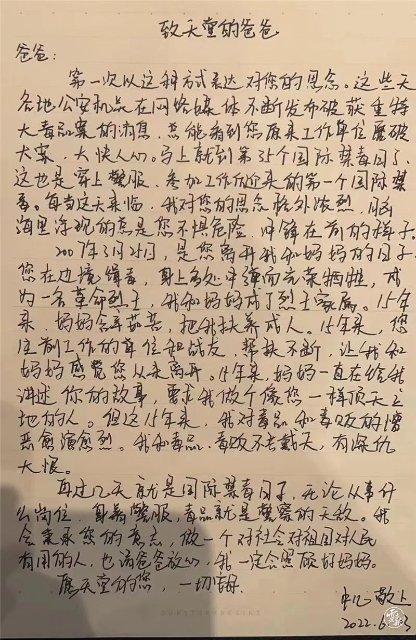 致天堂的爸爸
爸爸:
第一次以这种方式表达对您的思念。这些天
各地公安机关在网络媒体不断发布破获重特
大毒品案的消息,总能看到您原来工作单位屡破
大案,大快人心。马上就到第35个国际禁毒日了,
这也是穿上警服、参加工作以来的第一个国际禁
毒。每当这天来临,我对您的思念格外浓烈,脑
海里浮现的总是您不惧危险,冲锋在前的样子。
2007年3月25日,是您离开我和妈妈的日子。
您在边境缉毒,身上多处中弹而光荣牺牲,成
为一名革命烈士,我和妈妈成了烈士家属。15年
来,妈妈含辛茹苦,把我扶养成人。15年来,您
生前工作的单位和战友,帮扶不断,让我和
妈妈感觉您从未离开。15年来,妈妈一直在给我
讲述你的故事,要求我做个像您一样顶天立
地的人。但这15年来,我对毒品和毒贩的憎
恶愈演愈烈。我和毒品、毒贩不共戴天,有深仇
大恨。
再过几天就是国际禁毒日了,无论从事什
么岗位,身着警服,毒品就是警察的天敌。我
会秉承您的意志,做一个对社会对祖国对人民
有用的人,也请爸爸放心,我一定会照顾好妈妈。
愿天堂的您,一切安好
敬上
2022.6.23